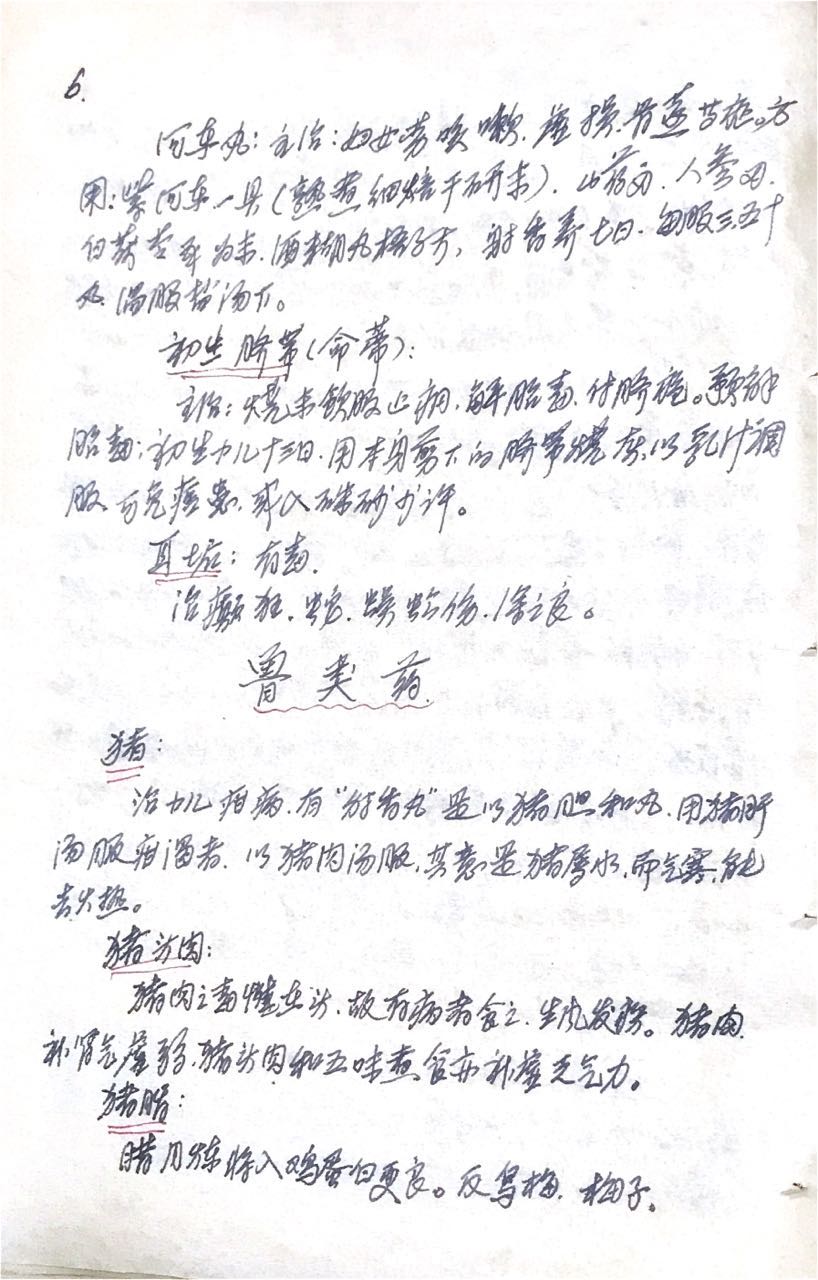 6.
河车丸：主治：妇女劳咳嗽．虚损．骨蒸等症。方
用：紫河车一具（熟煮细焙干研末）．山药刄．人参刄．
白茯苓 为末．酒糊丸梧子大，射香养七日．每服三五十
丸．温服盐汤下。
初生脐带（命蒂）：
主治：烧末饮服止疟．解胎毒．付脐疮。预解
胎毒：初生小儿十三日．用本身剪下的脐带烧灰．以乳汁调
服．可免痘患．或入硃砂少许。
耳垢：有毒．
治癫狂．蛇．蜈蚣伤．
兽类药．
猪：
治小儿疳病．有“射香丸”是以猪胆和丸．用猪肝
汤服疳渴者．以猪肉汤服．其意是猪属水．而气寒．能
去火热。
猪头肉：
猪肉之毒惟在头．故有病者食之．生风发疾。猪肉
补肾气虚弱．猪头肉和五味煮食亦补虚乏气力。
猪脂：
腊月炼 入鸡蛋白更良。反乌梅．梅子。